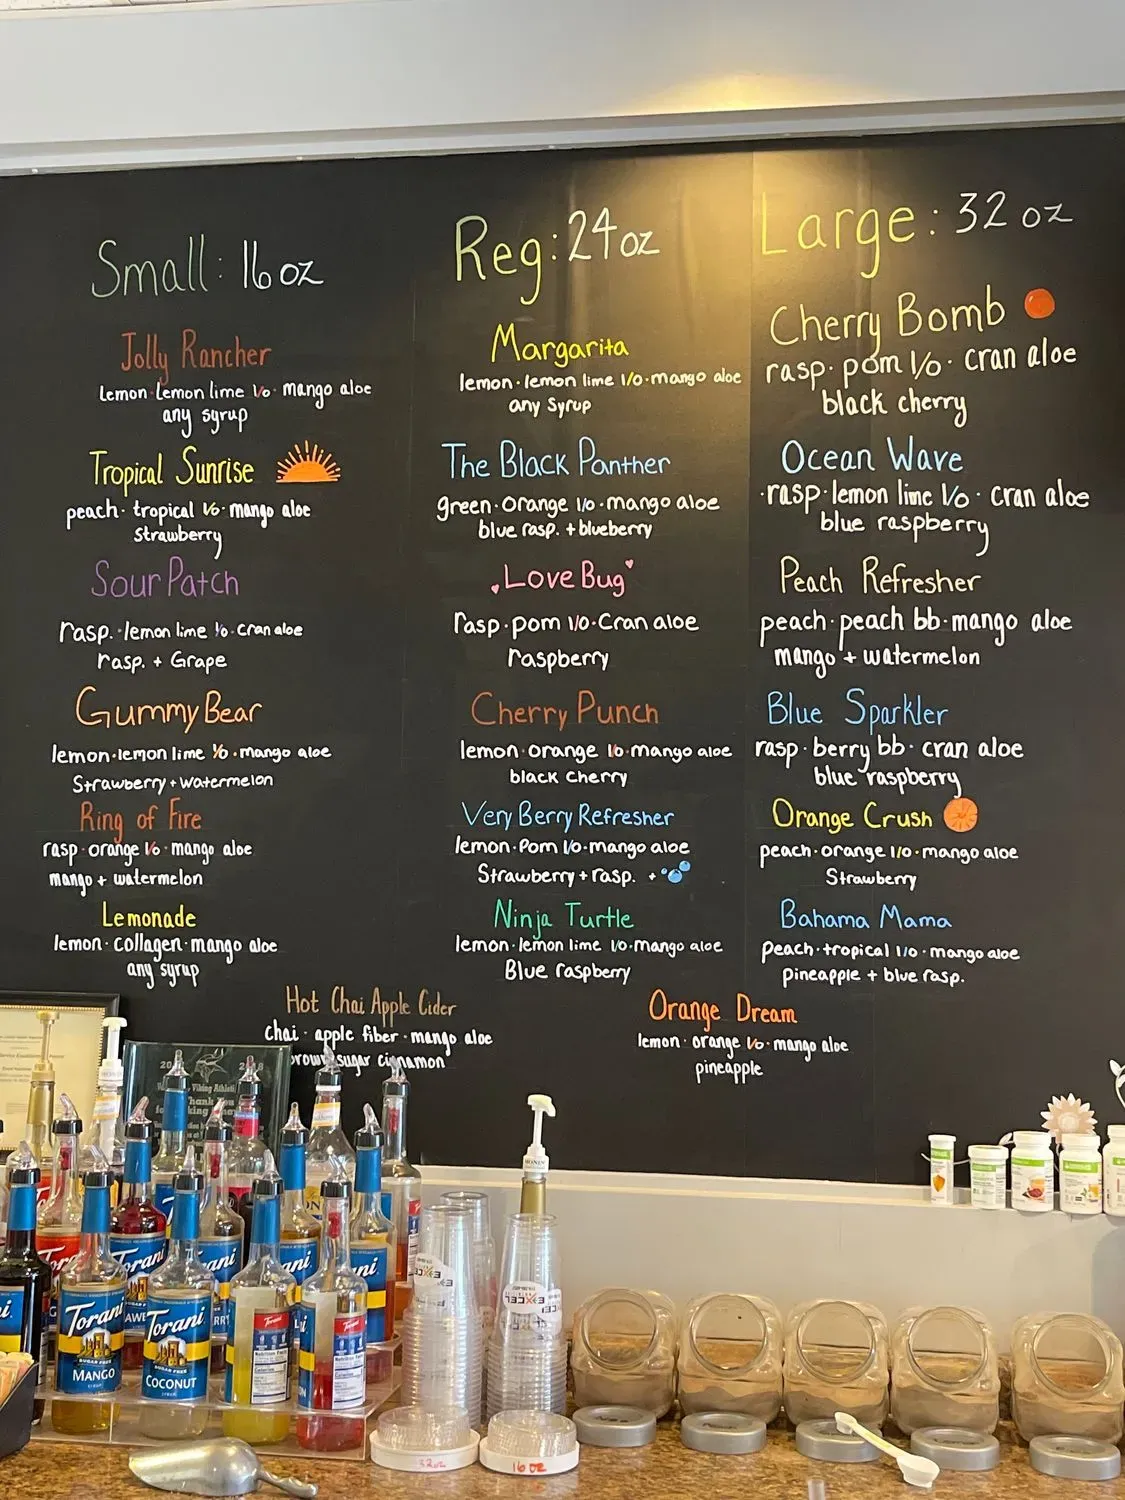 Small: 16 oz
Jolly Rancher
Lemon · Lemon lime 1/0 · mango aloe
any syrup
Tropical Sunrise
peach · tropical 1/0 · mango aloe
Strawberry
Sour Patch
rasp. · lemon lime 1/0 · cran aloe
rasp. + Grape
Gummy Bear
lemon · lemon lime 1/0 · mango aloe
Strawberry + watermelon
Ring of Fire
rasp · orange 1/0 · mango aloe
mango + watermelon
Lemonade
lemon · collagen · mango aloe
any syrup
Hot Chai Apple Cider
chai · apple fiber · mango aloe
brown sugar cinnamon
Reg: 24 oz
Margarita
lemon · lemon lime 1/0 · mango aloe
any Syrup
The Black Panther
green · orange 1/0 · mango aloe
blue rasp. + blueberry
Love Bug
rasp · pom 1/0 · Cran aloe
raspberry
Cherry Punch
lemon · orange 1/0 · mango aloe
black cherry
Very Berry Refresher
lemon · Pom 1/0 · mango aloe
Strawberry + rasp. +
Ninja Turtle
lemon · lemon lime 1/0 · mango aloe
Blue raspberry
Large: 32 oz
Cherry Bomb
rasp · pom 1/0 · cran aloe
black cherry
Ocean Wave
· rasp · lemon lime 1/0 · cran aloe
blue raspberry
Peach Refresher
peach · peach bb · mango aloe
mango + watermelon
Blue Sparkler
rasp · berry bb · cran aloe
blue raspberry
Orange Crush
peach · orange 1/0 · mango aloe
Strawberry
Bahama Mama
peach · tropical 1/0 · mango aloe
pineapple + blue rasp.
Orange Dream
lemon · orange 1/0 · mango aloe
pineapple
Torani
SUGAR FREE
MANGO
SYRUP
Torani
SUGAR FREE
COCONUT
SYRUP
Torani
EXCEL
32 oz
16 oz